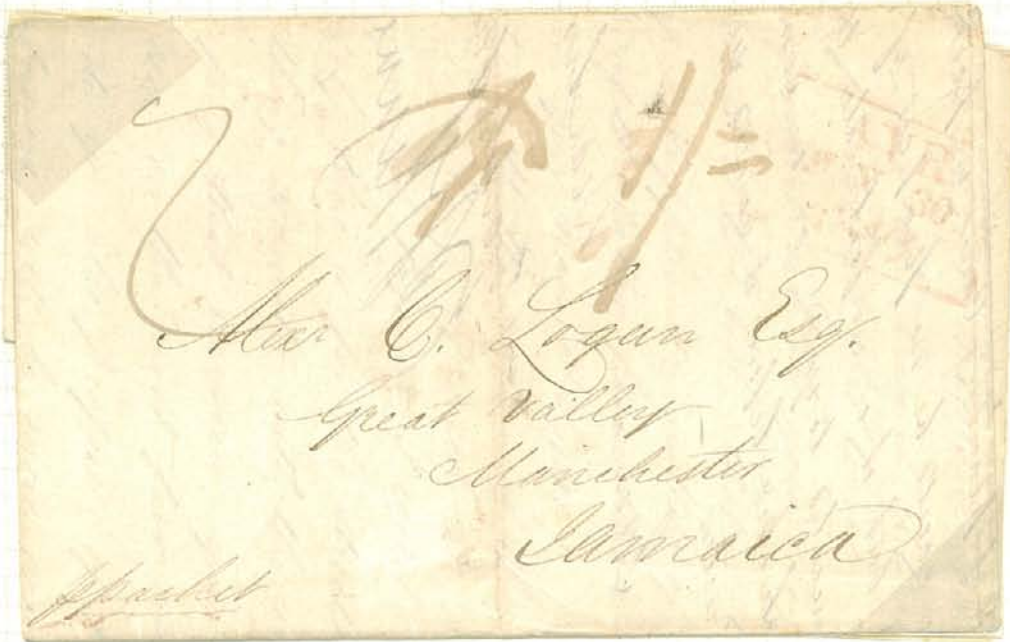 1/=
Alexr C. Logan Esq.
Great Valley
Manchester
Jamaica
p packet